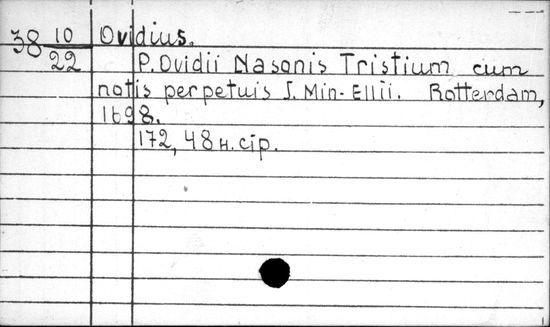 38 10/22 Ovidius.
P. Ovidii Nasonis Tristium cum
notis perpetuis J. Min-Ellii. Rotterdam,
1698.
172, 48 н. сір.